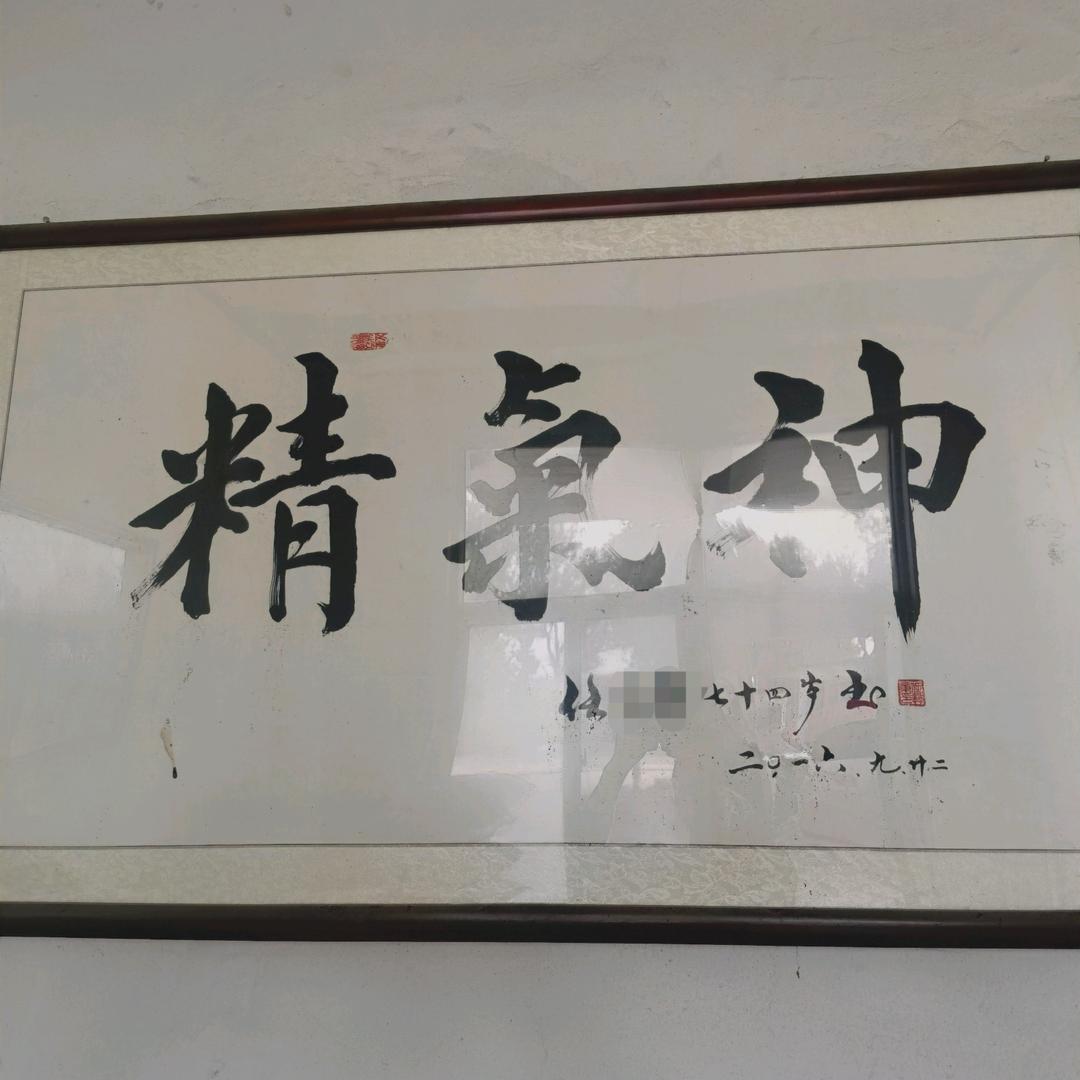 精氣神
七十四岁书
二〇一六.九.廿二